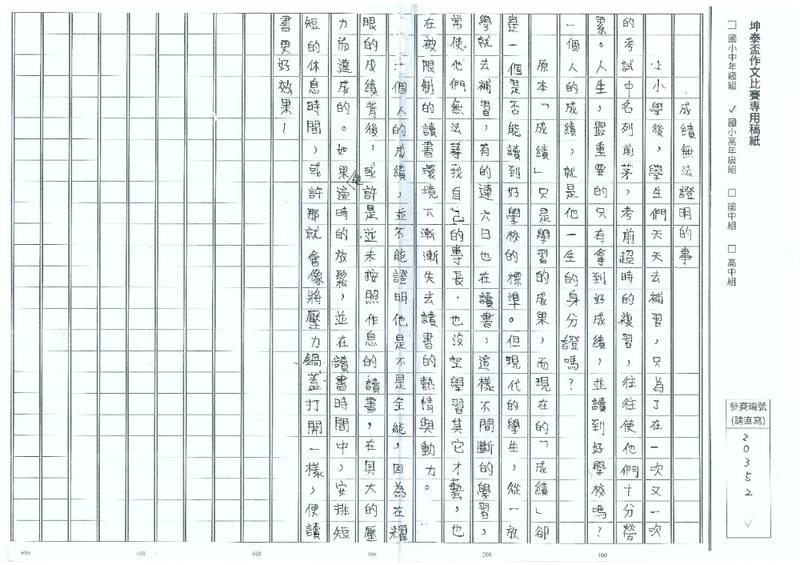 坤泰盃作文比賽專用稿紙
□ 國小中年級組 ✓ 國小高年級組 □ 國中組 □ 高中組
參賽編號
(請直寫)
20352
成績無法證明的事
上小學後，學生們天天去補習，只為了在一次又一次
的考試中名列前茅，考前超時的複習，往往使他們十分勞
累。人生，最重要的只有拿到好成績，並讀到好學校嗎？
一個人的成績，就是他一生的身分證嗎？
原本「成績」只是學習的成果，而現在的「成績」卻
是一個是否能讀到好學校的標準。但現代的學生，從一放
學就去補習，有的連六日也在讀書，這樣不間斷的學習，
常使他們無法尋我自己的專長，也沒空學習其它才藝，也
在被限制的讀書環境下漸漸失去讀書的熱情與動力。
一個人的成績，並不能證明他是不是全能，因為在耀
眼的成績背後，或許是並未按照作息的讀書，在與大的壓
力而達成的。如果這時的放鬆，並在讀書時間中，安排短
短的休息時間，或許那就會像將壓力鍋蓋打開一樣，使讀
書更好效果！
100
200
300
400
500
600